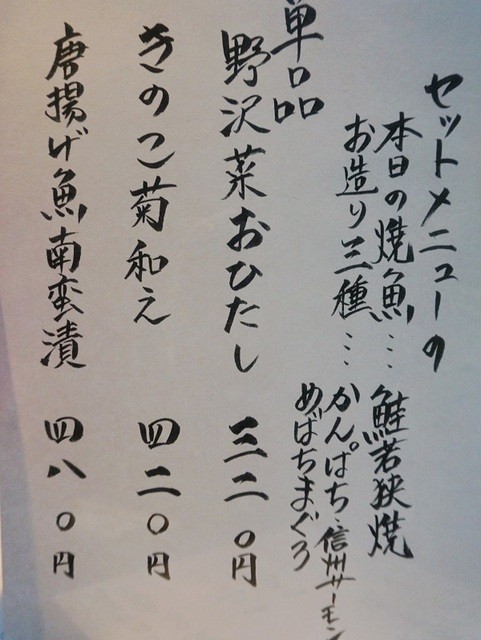 セットメニューの
本日の焼魚… 鮭若狭焼
お造り三種… かんぱち、信州サーモン
めばちまぐろ
単品
野沢菜おひたし 三二〇円
きのこ菊和え 四二〇円
唐揚げ魚南蛮漬 四八〇円